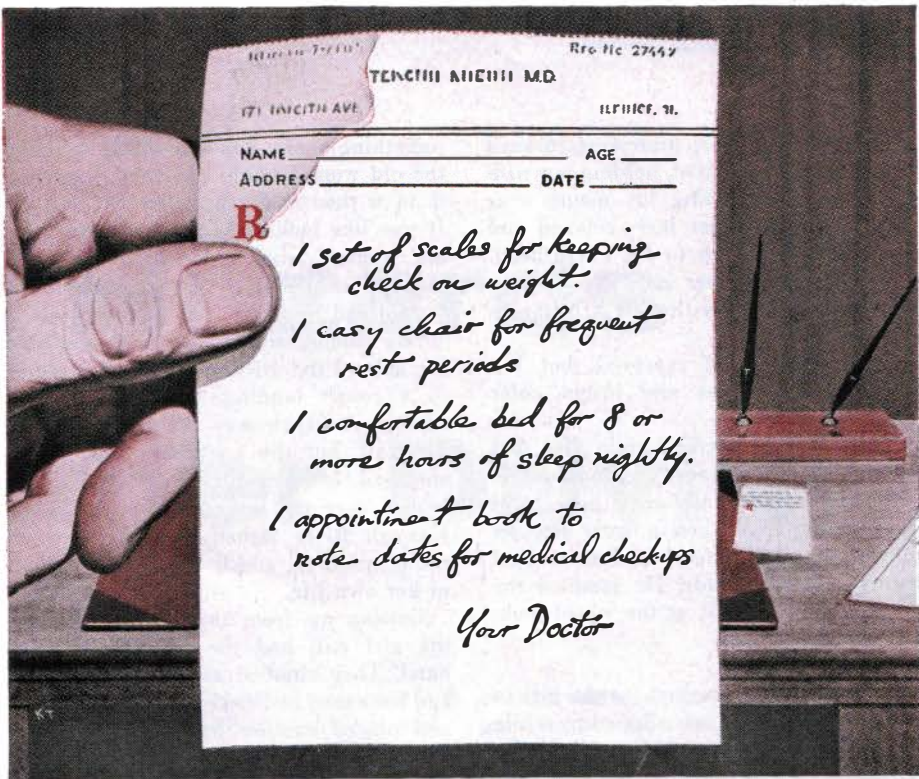 M.D.
AVE.
NAME AGE
ADDRESS DATE
R
1 set of scales for keeping
check on weight.
1 easy chair for frequent
rest periods
1 comfortable bed for 8 or
more hours of sleep nightly.
1 appointment book to
note dates for medical checkups
Your Doctor